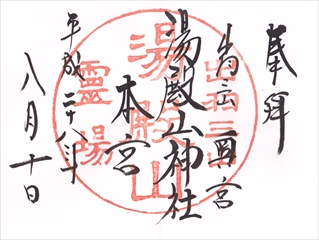 奉拝
出羽三山奥宮
湯殿山神社
本宮
平成二十八年
八月十日
出羽三山
湯殿山
靈場